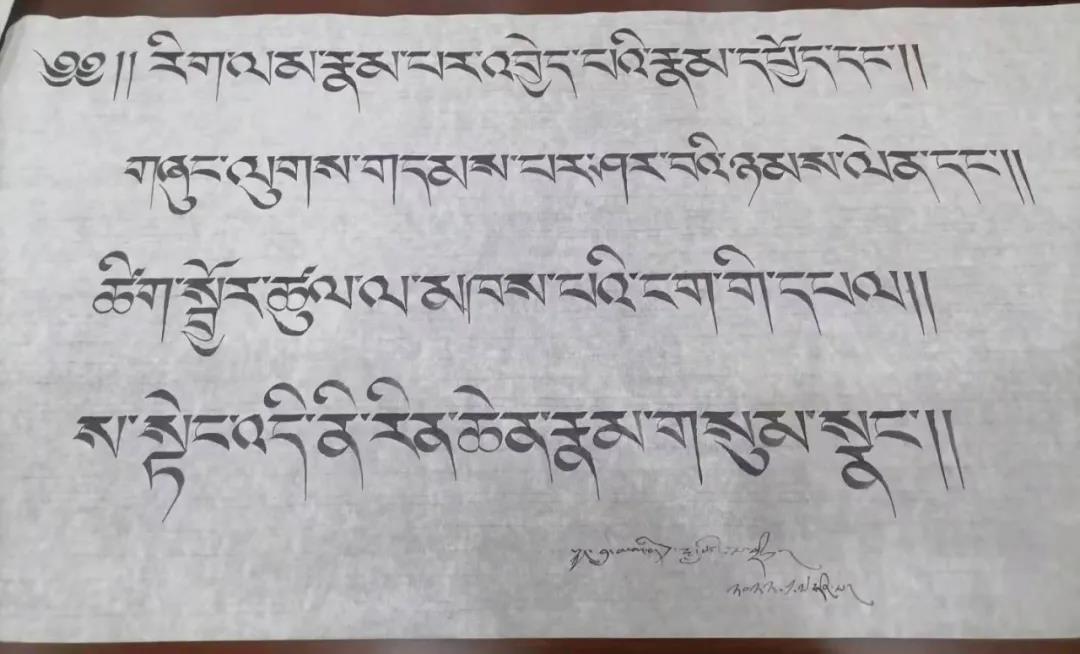 ༄༅།། རིག་ལམ་རྣམ་པར་འབྱེད་པའི་རྣམ་དཔྱོད་དང་།།
གཞུང་ལུགས་གདམས་པར་ཤར་བའི་ཉམས་ལེན་དང་།།
ཚིག་སྦྱོར་ཚུལ་ལ་མཁས་པའི་ངག་གི་དཔལ།།
ས་སྟེང་འདི་ནི་རིན་ཆེན་རྣམ་གསུམ་སྣང་།།